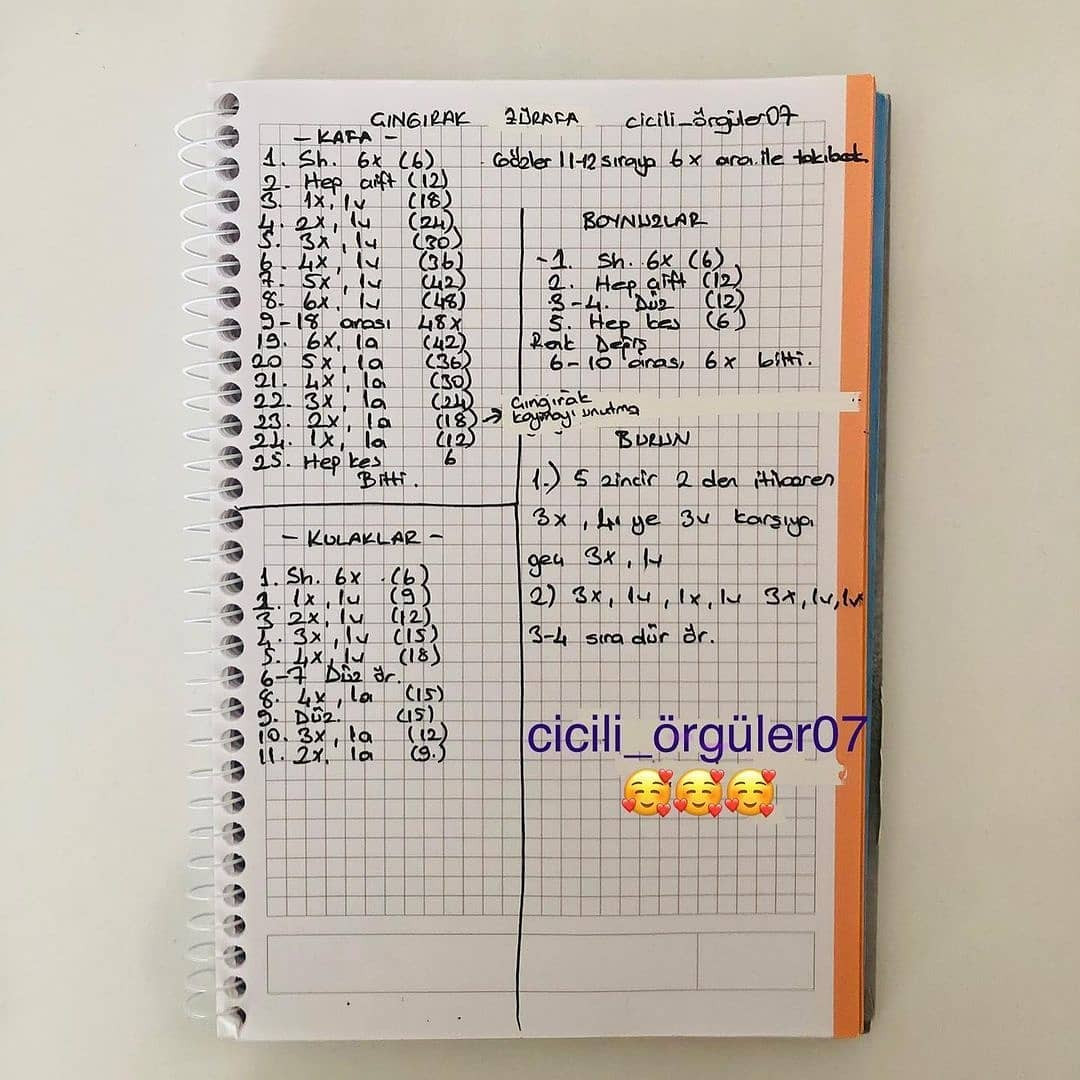 ÇINGIRAK ZÜRAFA cicili_örgüler07
- KAFA -
1. Sh. 6x (6)
2. Hep çift (12)
3. 1x, 1v (18)
4. 2x, 1v (24)
5. 3x, 1v (30)
6. 4x, 1v (36)
7. 5x, 1v (42)
8. 6x, 1v (48)
9-18 arası 48x
19. 6x, 1a (42)
20 5x, 1a (36)
21. 4x, 1a (30)
22. 3x, 1a (24)
23. 2x, 1a (18) → Çıngırak koymayı unutma
24. 1x, 1a (12)
25. Hep kes 6
Bitti.
- KULAKLAR -
1. Sh. 6x (6)
2. 1x, 1v (9)
3 2x, 1v (12)
4. 3x, 1v (15)
5. 4x, 1v (18)
6-7 Düz ör.
8. 4x, 1a (15)
9. Düz. (15)
10. 3x, 1a (12)
11. 2x, 1a (9.)
Gözler 11-12 sıraya 6x ara ile
BOYNUZLAR
-1. Sh. 6x (6)
2. Hep çift (12)
3-4. Düz (12)
5. Hep kes (6)
Renk Değiş
6-10 arası 6x bitti.
BURUN
1.) 5 zincir 2 den itibaren
3x, ye 3v karşıya
geç 3x, 1v
2) 3x, 1v, 1x, 1v 3x, 1v, 1v
3-4 sıra düz ör.
cicili_örgüler07
🥰🥰🥰